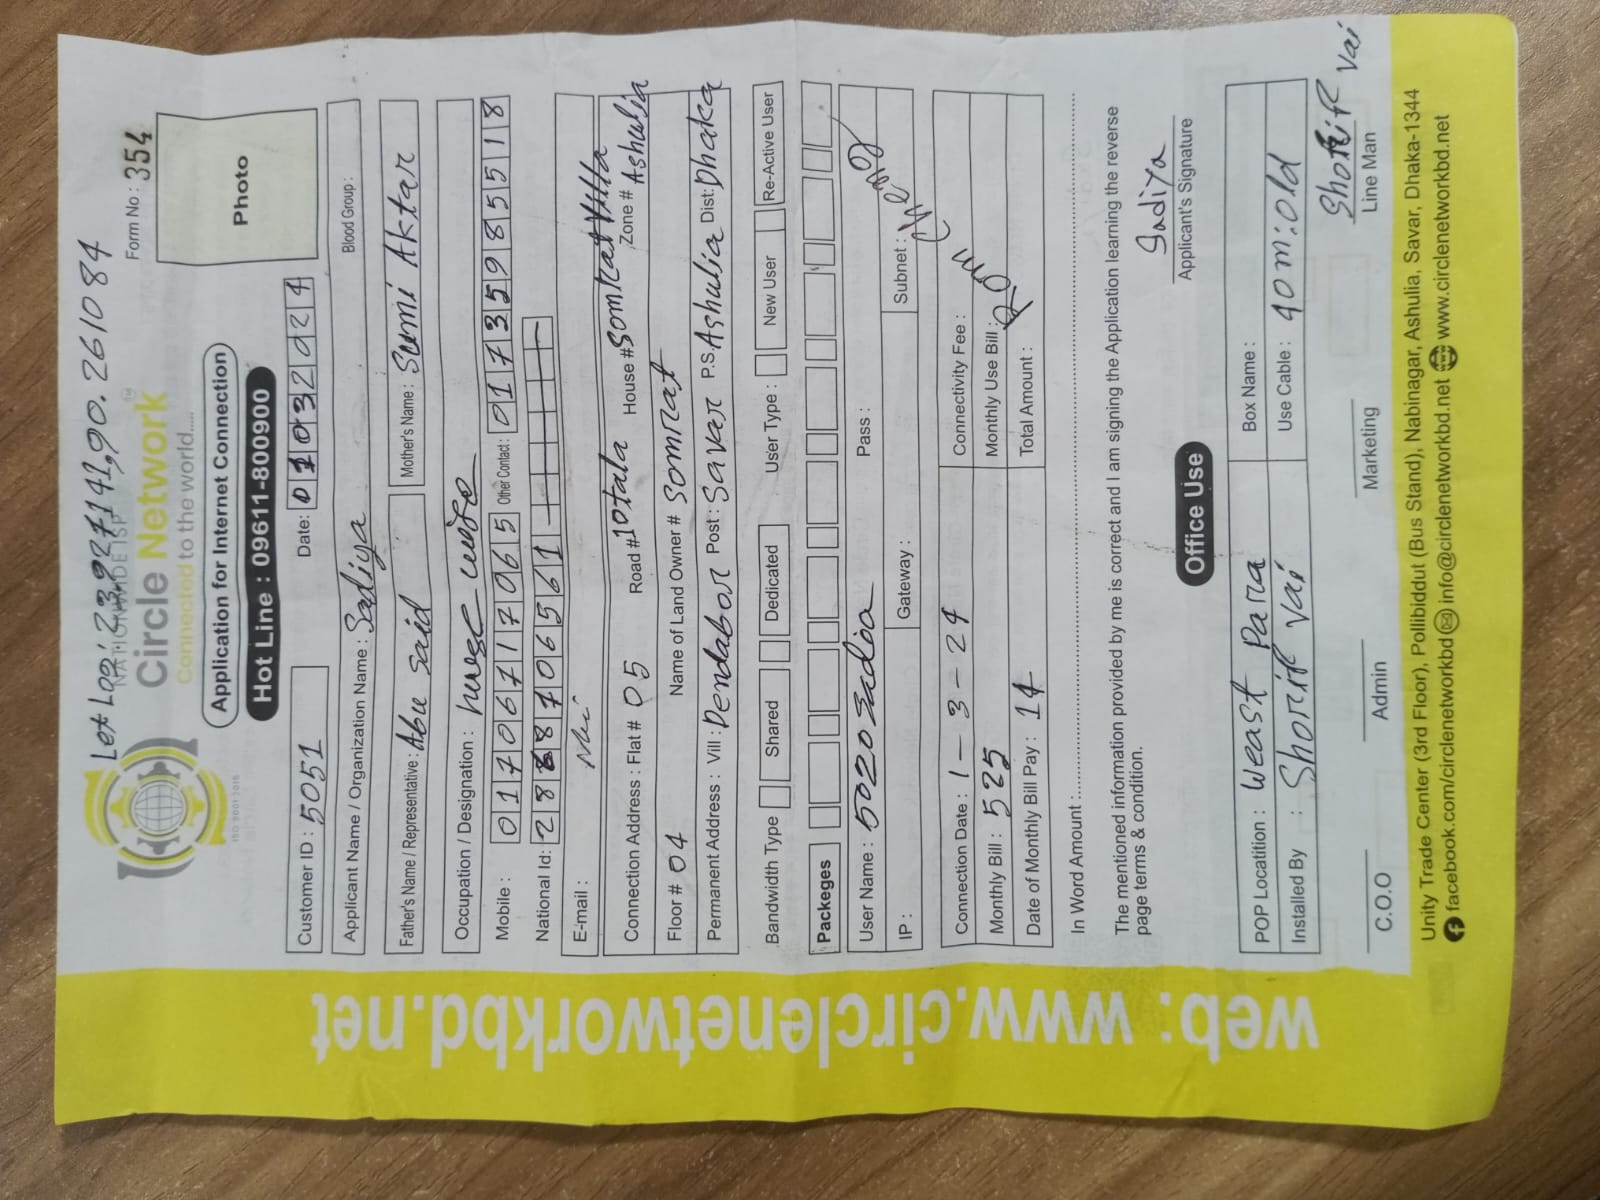 Let Log: 23.9271419,90.261084
NATIONWIDE ISP
Circle Network
Connected to the world.....
ISO 9001:2015
Form No.: 354
Photo
Application for Internet Connection
Hot Line : 09611-800900
Customer ID : 5051 Date: 01032024
Applicant Name / Organization Name : Sadiya Blood Group :
Father's Name / Representative : Abu Said Mother's Name : Sumi Aktar
Occupation / Designation : house wife
Mobile : 01706717065 Other Contact: 01735985518
National Id: 2887706561
E-mail : Nhi
Connection Address : Flat # 05 Road # 10tala House # Somrat Villa
Floor # 04 Name of Land Owner # Somrat Zone # Ashulia
Permanent Address : Vill : Dendabor Post : Savar P.S. Ashulia Dist: Dhaka
Bandwidth Type Shared Dedicated User Type : New User Re-Active User
Packeges
User Name : 5020 Sadia Pass :
IP : Gateway : Subnet :
Connection Date : 1-3-24 Connectivity Fee :
Monthly Bill : 525 Monthly Use Bill :
Date of Monthly Bill Pay : 14 Total Amount :
In Word Amount :
The mentioned information provided by me is correct and I am signing the Application learning the reverse
page terms & condition.
Sadiya
Applicant's Signature
Office Use
POP Locatition : Weast Para Box Name :
Installed By : Shorif Vai Use Cable : 40m:old
Shorif Vai
C.O.O Admin Marketing Line Man
Unity Trade Center (3rd Floor), Pollibiddut (Bus Stand), Nabinagar, Ashulia, Savar, Dhaka-1344
facebook.com/circlenetworkbd info@circlenetworkbd.net www.circlenetworkbd.net
web: www.circlenetworkbd.net